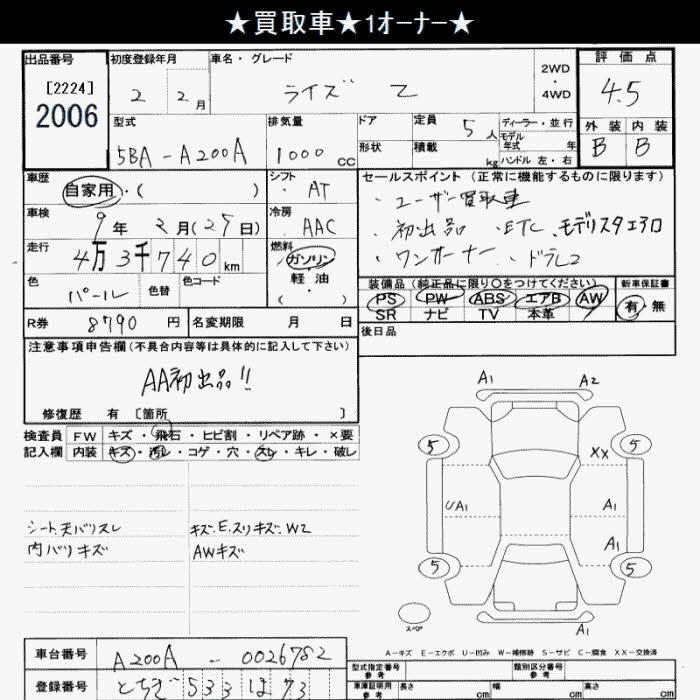 ★買取車★1オーナー★
出品番号
[2224]
2006
初度登録年月
2 2月
車名・グレード
ライズ Z
2WD
・
4WD
評価点
4.5
外装 内装
B B
型式
5BA-A200A
排気量
1000 CC
ドア
形状
定員 5人
積載 kg
ディーラー・並行
モデル年式 年
ハンドル 左・右
車歴
自家用・( )
シフト
AT
車検
9年 2月(25日)
冷房
AAC
走行
4万3千740km
燃料
ガソリン
軽・油
( )
色
パール
色替
色コード
セールスポイント(正常に機能するものに限ります)
・ユーザー買取車
・初出品 ・ETC、モデリスタエアロ
・ワンオーナー ・ドラレコ
装備品(純正品に限り○をつけてください)
PS PW ABS エアB AW
SR ナビ TV 本革
新車保証書
有・無
R券 8790円
名変期限 月 日
後日品
注意事項申告欄(不具合内容等は具体的に記入して下さい)
AA初出品!!
修復歴 有 〔箇所 〕
検査員 FW キズ・飛石・ヒビ割・リペア跡・×要
記入欄 内装 キズ・汚レ・コゲ・穴・スレ・キレ・破レ
シート、天バリスレ
内バリキズ
キズ、E、スリキズ、W2
AWキズ
A1 A2
5 5
XX
UA1 A1
A1
5 5
スペア
A1
A-キズ E-エクボ U-凹み W-補修跡 S-サビ C-腐食 XX-交換済
車台番号
A200A-0026782
登録番号
とちぎ 533 は 73
型式指定番号
参考
類別区分番号
参考
車庫証明用
参考
長さ cm 幅 cm 高さ cm